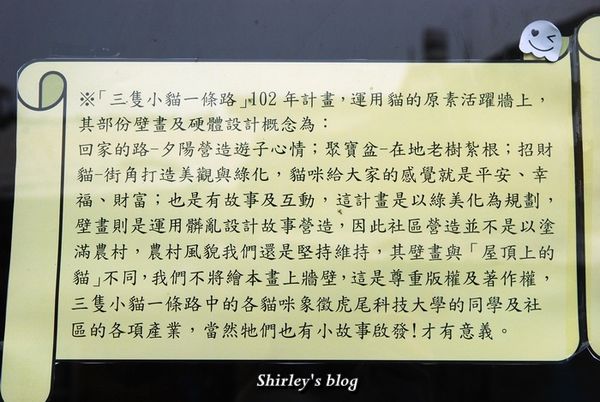 ※「三隻小貓一條路」102年計畫，運用貓的原素活躍牆上，
其部份壁畫及硬體設計概念為：
回家的路-夕陽營造遊子心情；聚寶盆-在地老樹紮根；招財
貓-街角打造美觀與綠化，貓咪給大家的感覺就是平安、幸
福、財富；也是有故事及互動，這計畫是以綠美化為規劃，
壁畫則是運用髒亂設計故事營造，因此社區營造並不是以塗
滿農村，農村風貌我們還是堅持維持，其壁畫與「屋頂上的
貓」不同，我們不將繪本畫上牆壁，這是尊重版權及著作權，
三隻小貓一條路中的各貓咪象徵虎尾科技大學的同學及社
區的各項產業，當然牠們也有小故事啟發!才有意義。
Shirley's blog